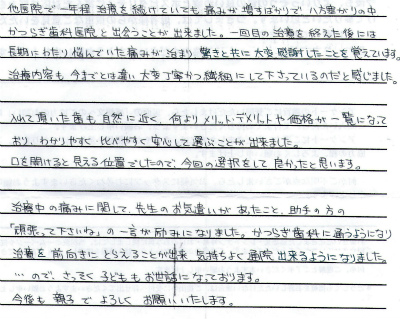 他医院で一年程 治療を続けていても 痛みが増すばかりで 八方塞がりの中
かつらぎ歯科医院と出会うことが出来ました。一回目の治療を終えた後には
長期にわたり悩んでいた痛みが治まり 驚きと共に大変感謝したことを覚えています。
治療内容も 今までとは違い 大変丁寧かつ繊細にして下さっているのだと感じました。
入れて頂いた歯も自然に近く、何よりメリット・デメリットや価格が一覧になって
おり、わかりやすく 比べやすく 安心して選ぶことが出来ました。
口を開けると見える位置でしたので、今回の選択をして良かったと思います。
治療中の痛みに関して、先生のお気遣いがあったこと、助手の方の
「頑張って下さいね」の一言が励みになりました。かつらぎ歯科に通うようになり
治療を前向きにとらえることが出来 気持ちよく通院出来るようになりました。
…ので、さっそく子どももお世話になっております。
今後も 親子で よろしく お願いいたします。